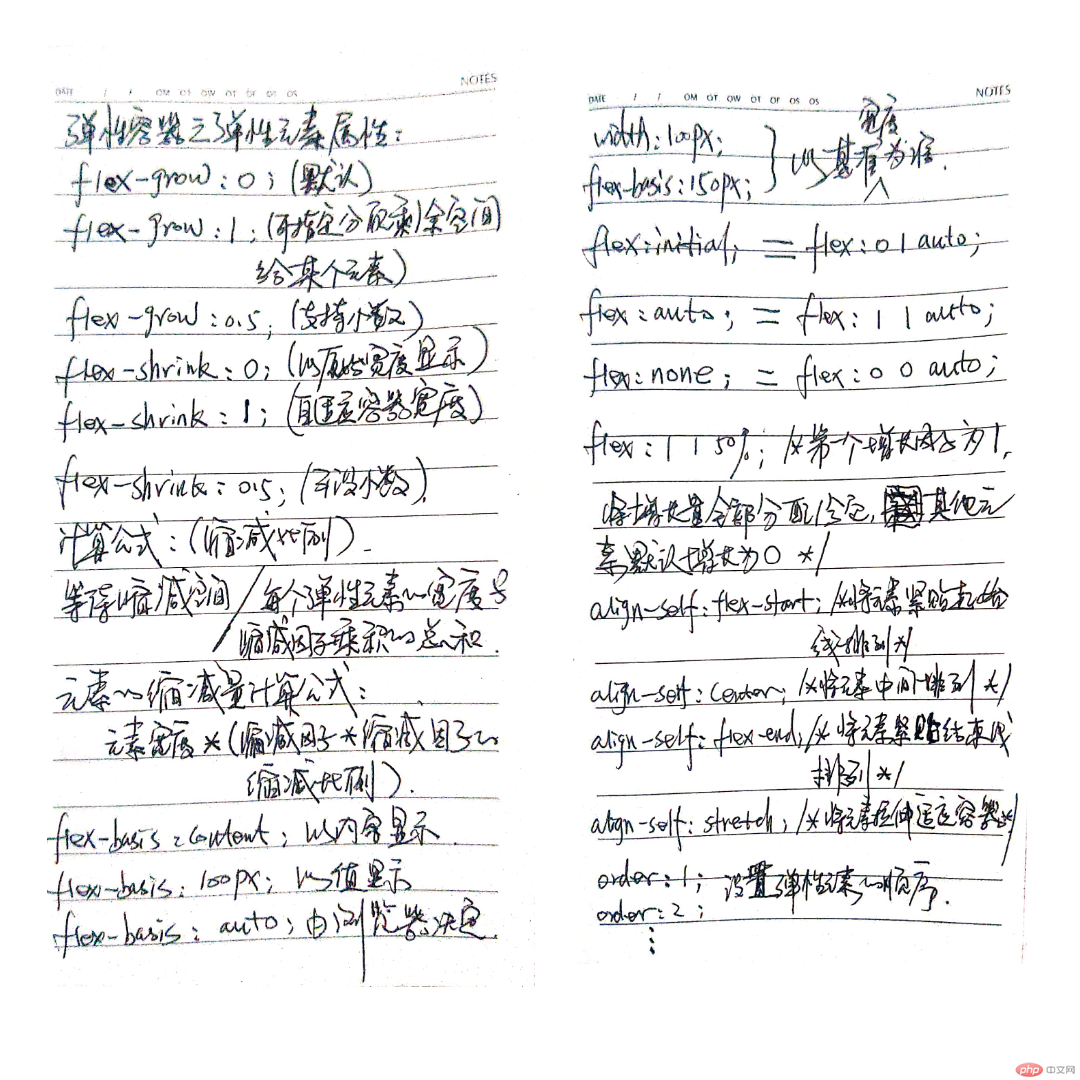 NOTES
DATE / / OM OT OW OT OF OS OS
弹性容器之弹性元素属性:
flex-grow:0;(默认)
flex-grow:1;(可指定分配剩余空间
给某个元素)
flex-grow:0.5;(支持小数)
flex-shrink:0;(以原始宽度显示)
flex-shrink:1;(自适应容器宽度)
flex-shrink:0.5;(可设小数).
计算公式:(缩减比例).
等待缩减空间/每个弹性元素的宽度与
缩减因子乘积的总和.
元素的缩减量计算公式:
元素宽度*(缩减因子*缩减因子的
缩减比例).
flex-basis:content;以内容显示.
flex-basis:100px;以值显示
flex-basis:auto;由浏览器决定.
NOTES
DATE / / OM OT OW OT OF OS OS
width:100px;
flex-basis:150px; } 以基准宽度为准.
flex:initial; = flex:0 1 auto;
flex:auto; = flex:1 1 auto;
flex:none; = flex:0 0 auto;
flex:1 1 50%; /*第一个增长因子为1,
将增长量全部分配给它,其他元
素默认增长为0 */
align-self:flex-start; /*将元素紧贴起始
线排列*/
align-self:center; /*将元素中间排列 */
align-self:flex-end; /*将元素紧贴结束线
排列*/
align-self:stretch; /*将元素拉伸适应容器*/
order:1; 设置弹性元素的顺序.
order:2;
⋮
php 中文网